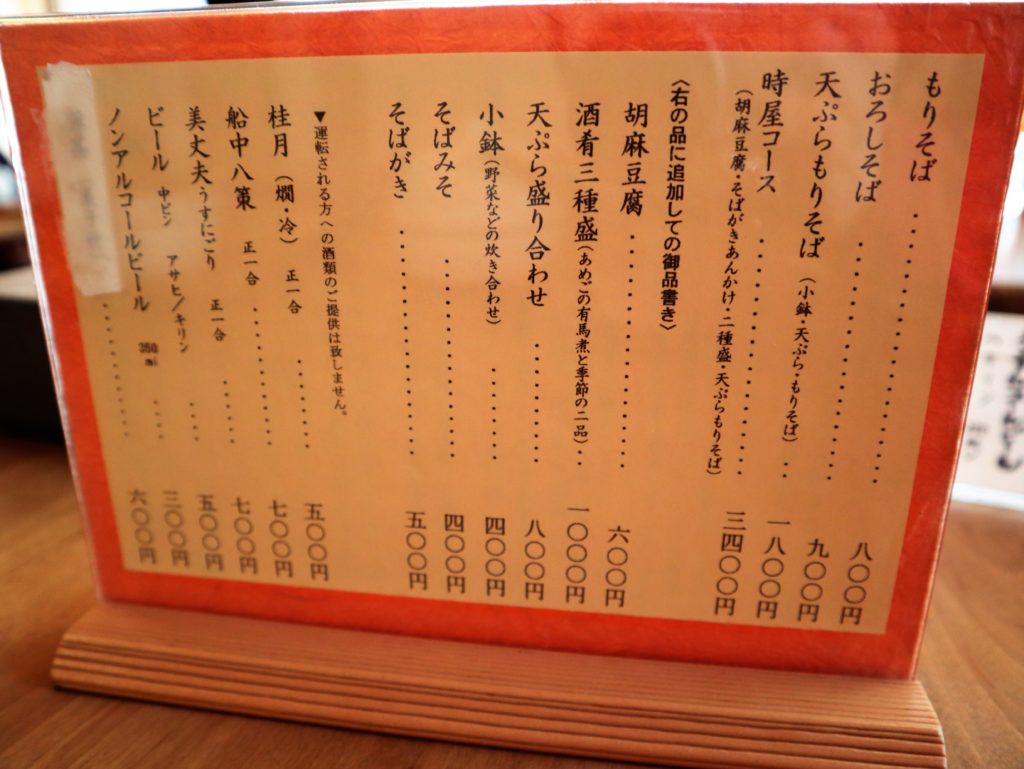 もりそば・・・・・・・・・・・・八〇〇円
おろしそば・・・・・・・・・・・・九〇〇円
天ぷらもりそば(小鉢・天ぷら・もりそば)・・一八〇〇円
時屋コース・・・・・・・・・・・・三四〇〇円
(胡麻豆腐・そばがきあんかけ・二種盛・天ぷらもりそば)
〈右の品に追加しての御品書き〉
胡麻豆腐・・・・・・・・・・・・六〇〇円
酒肴三種盛(あめごの有馬煮と季節の二品)・・一〇〇〇円
天ぷら盛り合わせ・・・・・・・・八〇〇円
小鉢(野菜などの炊き合わせ)・・・・・・四〇〇円
そばみそ・・・・・・・・・・・・四〇〇円
そばがき・・・・・・・・・・・・五〇〇円
▼運転される方への酒類のご提供は致しません。
桂月(燗・冷) 正一合・・・・・・五〇〇円
船中八策 正一合・・・・・・・・七〇〇円
美丈夫うすにごり 正一合・・・・・七〇〇円
ビール 中ビン アサヒ/キリン・・・・五〇〇円
ノンアルコールビール 350ml・・・・三〇〇円
・・・・・・・・六〇〇円